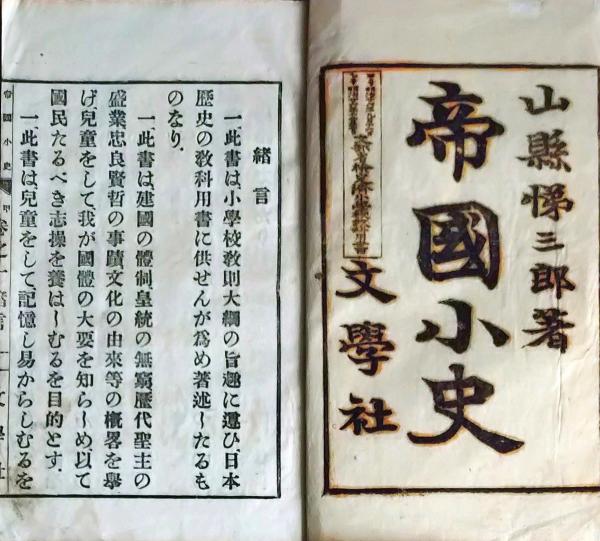 山縣悌三郎著
帝國小史
文學社
緒言
一此書は、小學校敎則大綱の旨趣に遵ひ、日本
歷史の敎科用書に供せんが爲め著述したるも
のなり.
一此書は、建國の體制皇統の無窮歷代聖主の
盛業忠良賢哲の事蹟文化の由來等の槪畧を擧
げ、兒童をして我が國體の大要を知らしめ、以て
國民たるべき志操を養はしむるを目的とす.
一此書は、兒童をして記憶し易からしむるを
帝國小史 甲 卷之一 緒言 一 文學社